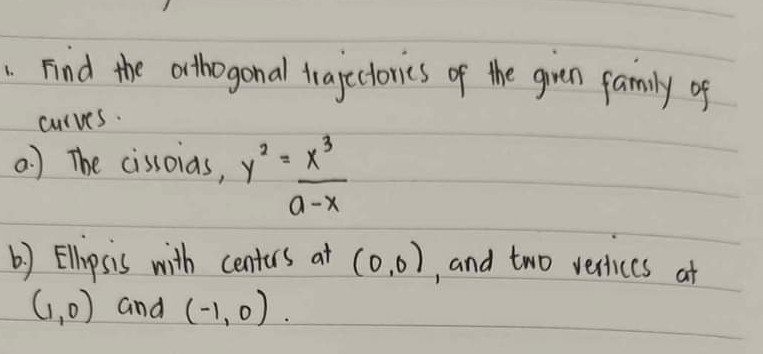 1. Find the orthogonal trajectories of the given family of
curves.
a.) The cissoids, y² = x³
a-x
b.) Ellipsis with centers at (0,0), and two vertices at
(1,0) and (-1,0).